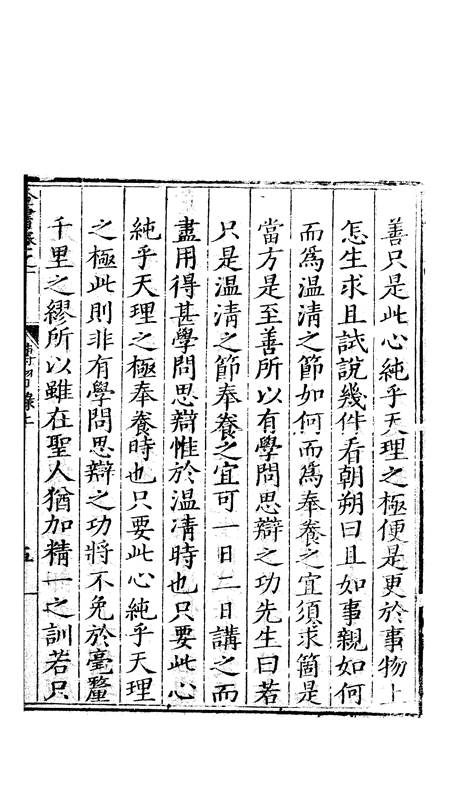 善只是此心純乎天理之極便是更於事物上
怎生求且試說幾件看朝朔曰且如事親如何
而爲温凊之節如何而爲奉養之宜須求箇是
當方是至善所以有學問思辯之功先生曰若
只是温凊之節奉養之宜可一日二日講之而
盡用得甚學問思辯惟於温凊時也只要此心
純乎天理之極奉養時也只要此心純乎天理
之極此則非有學問思辯之功將不免於毫釐
千里之繆所以雖在聖人猶加精一之訓若只
傳習錄上
五